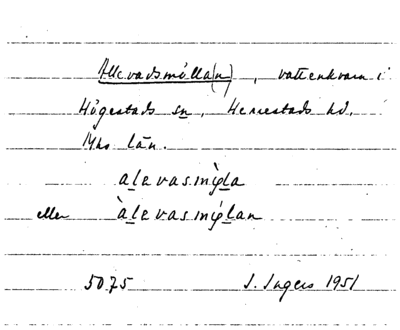 Allevadsmölla(n), vattenkvarn i
Högestads sn, Herrestads hd,
Mhs län.
alevasmỳla
eller àlevasmýlan
5075 I. Ingers 1951